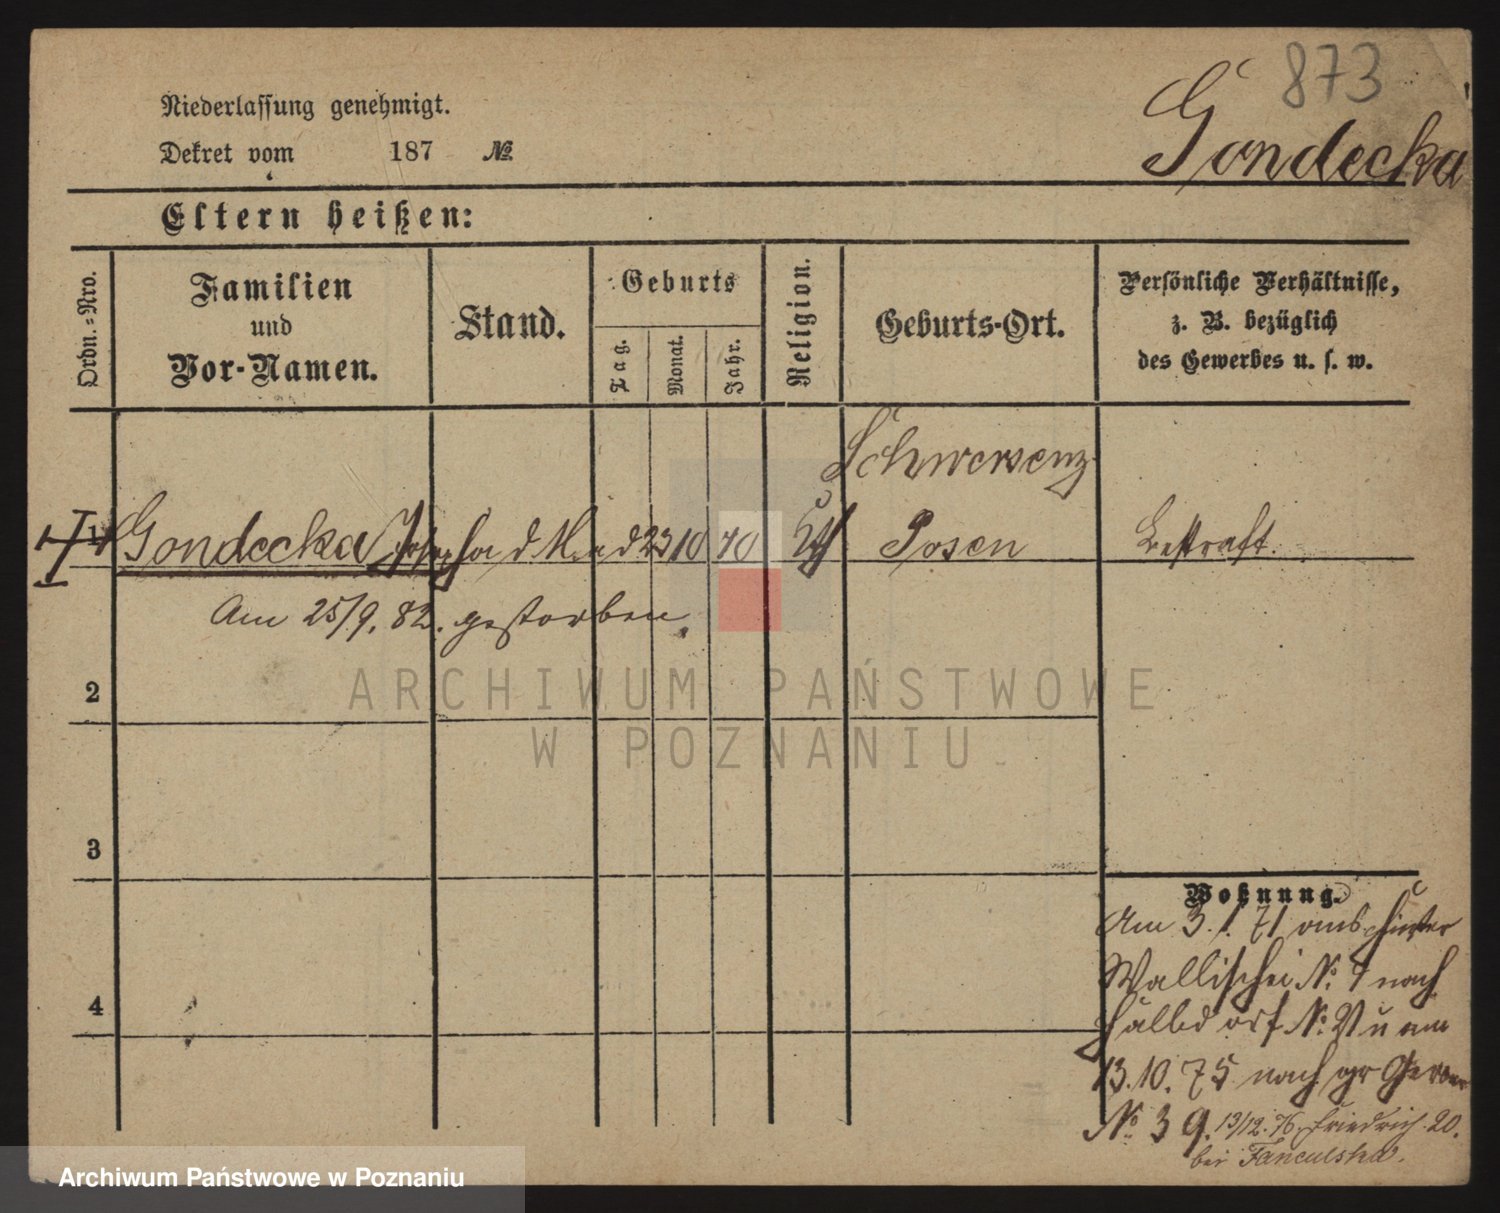 873
Gondecka
Niederlassung genehmigt.
Dekret vom 187 №
Eltern heißen:
Ordn.-Nro.
Familien
und
Vor-Namen.
Stand.
Geburts
Tag.
Monat.
Jahr.
Religion.
Geburts-Ort.
Persönliche Verhältnisse,
z. B. bezüglich
des Gewerbes u. s. w.
Schwersenz
1 Gondecka Josepha 23 10 Kth Posen Bestraft.
Am 25/9. 82. gestorben.
2
3
4
Wohnung.
Am 3. 1. 71 hinter
Wallischei №. nach
Halbdorf №: u am
13. 10. 75 nach gr Gerber
№. 39. 13/12. 76. Friedrich. 20.
bei
ARCHIWUM PAŃSTWOWE
W POZNANIU
Archiwum Państwowe w Poznaniu